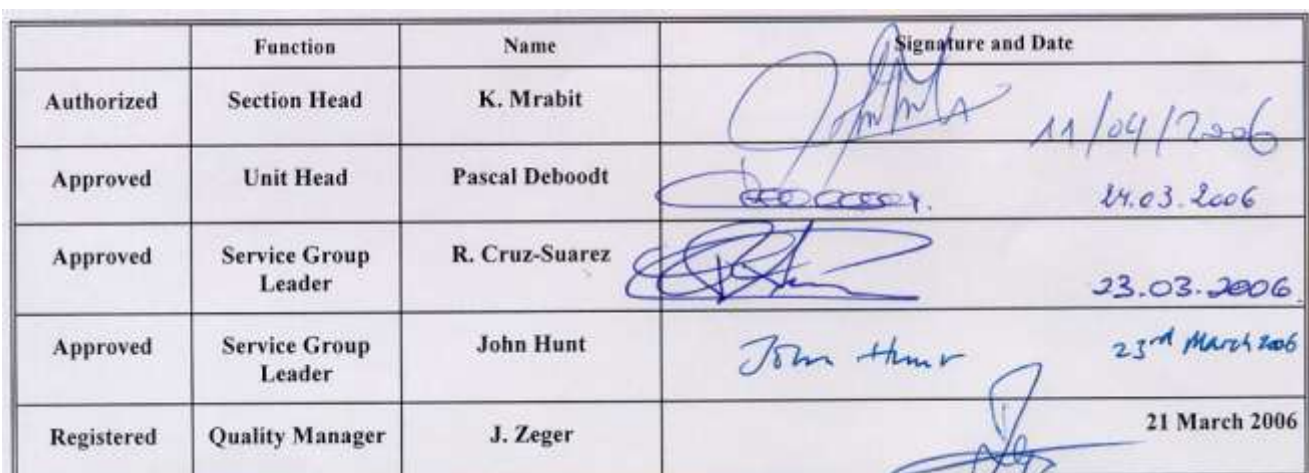 Function Name Signature and Date
Authorized Section Head K. Mrabit 11/04/2006
Approved Unit Head Pascal Deboodt 24.03.2006
Approved Service Group Leader R. Cruz-Suarez 23.03.2006
Approved Service Group Leader John Hunt John Hunt 23rd March 2006
Registered Quality Manager J. Zeger 21 March 2006